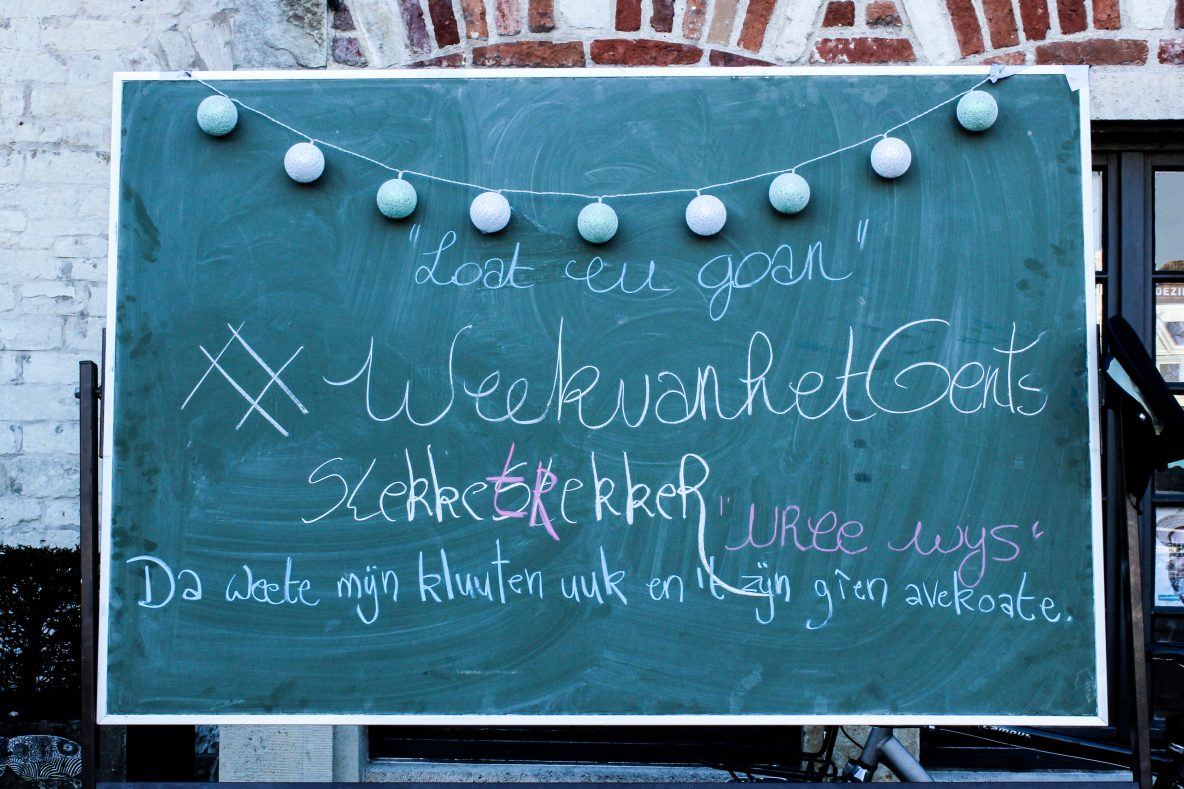 "Loat eu goan"
#WeekvanhetGents
SLekketRekkeR "VRee wys"
Da weete mijn kluuten uuk en 't zijn gien avekoate.